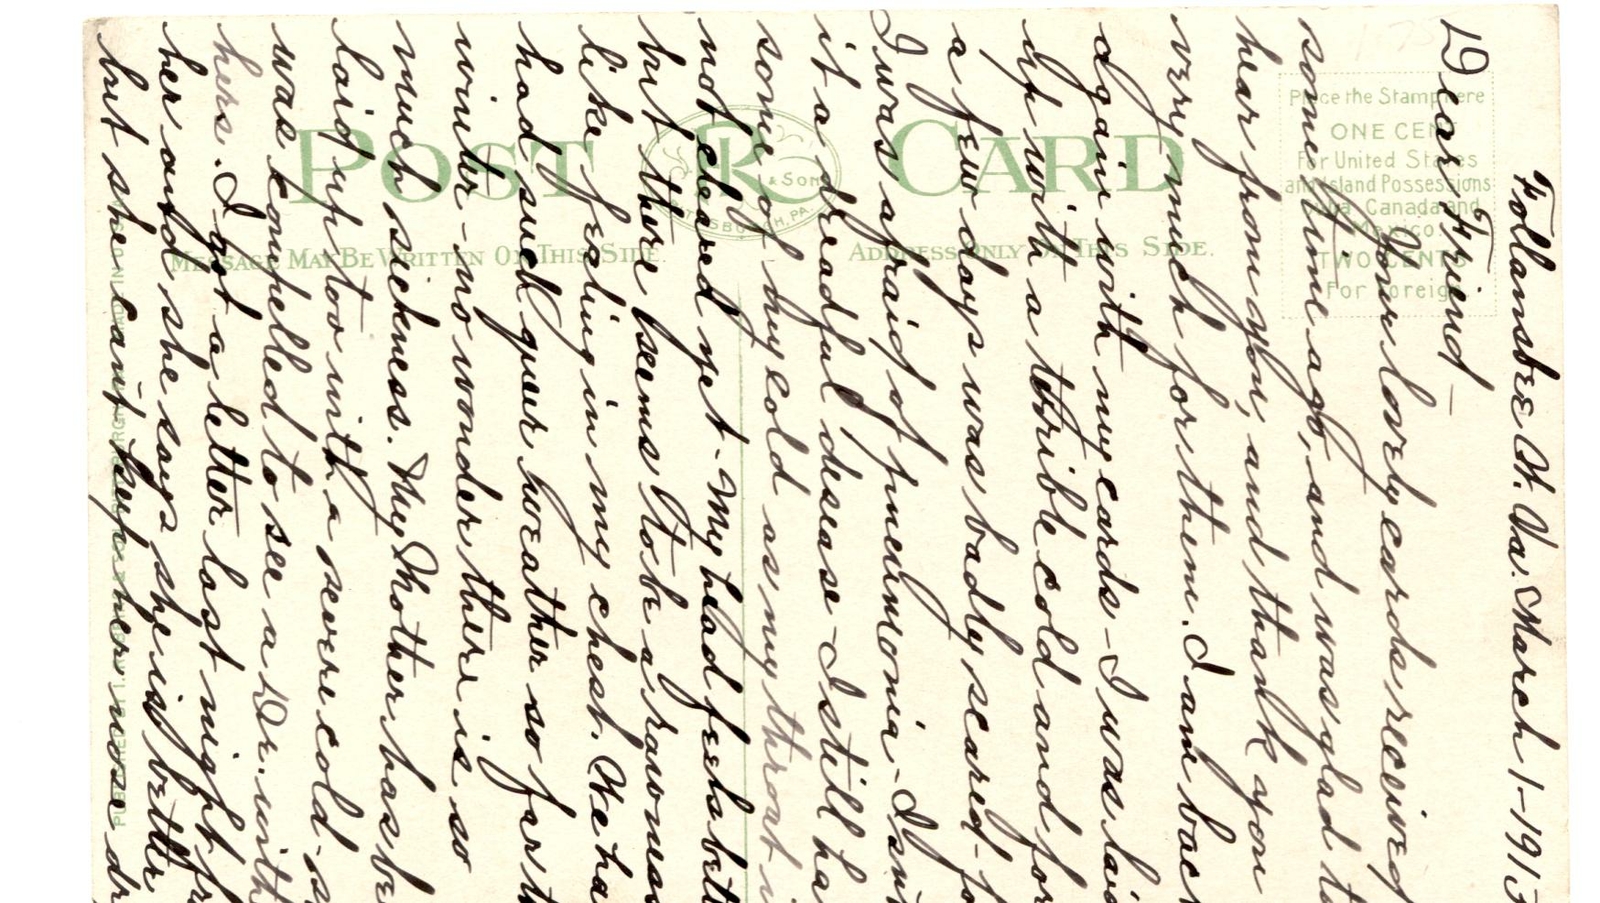 Follansbee W. Va. March 1-1913
Dear Friend-
Your lovely cards received
some time ago, and was glad to
hear from you, and thank you
very much for them. I am back
again with my cards - I was laid
up with a terrible cold and for
a few days was badly scared - for
I was afraid of pneumonia -
it a dreadful desease - I still ha
some of my cold as my throat i
not cleared yet. My head feels bett
but there seems to be a rawness
like feeling in my chest. We ha
had such queer weather so far th
winter - no wonder there is so
much sickness. My Mother has be
laid up too with a severe cold - s
was compelled to see a Dr. with
hers. I got a letter last night fr
her and she says she is better
but she can't keep her nose dr
POST CARD
R & SON
PITTSBURGH, PA.
MESSAGE MAY BE WRITTEN ON THIS SIDE.
ADDRESS ONLY ON THIS SIDE.
Place the Stamp here
ONE CENT
For United States
and Island Possessions
Cuba, Canada and
Mexico
TWO CENTS
For Foreign